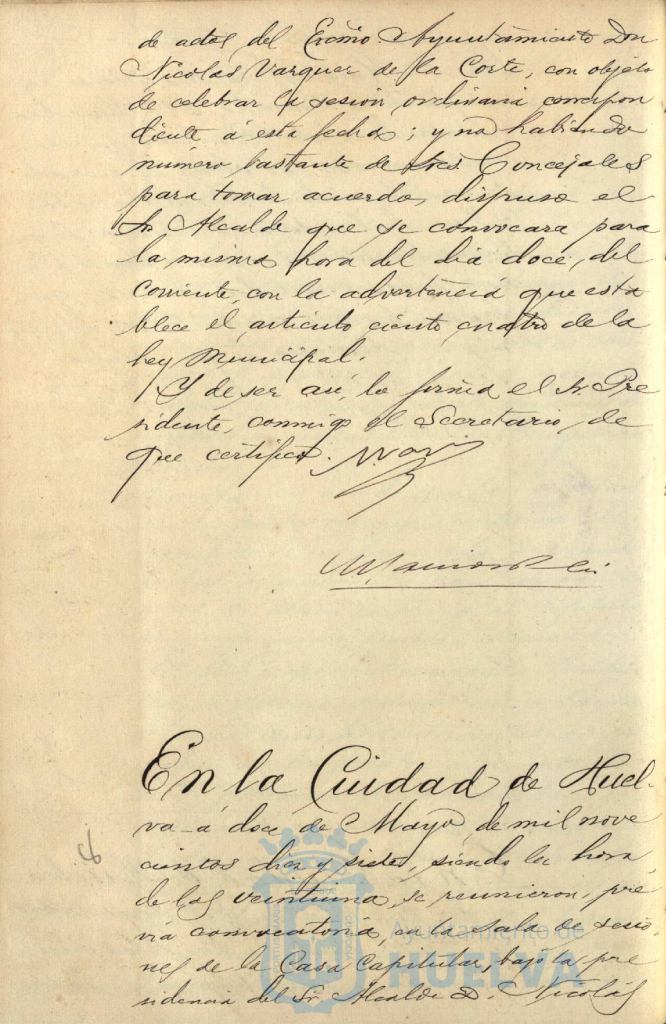 de actas del Excmo. Ayuntamiento Don
Nicolás Vazquez de la Corte, con objeto
de celebrar la sesión ordinaria correspon
diente á esta fecha; y no habiendo
número bastante de Sres. Concejales
para tomar acuerdo, dispuso el
Sr. Alcalde que se convocara para
la misma hora del dia doce, del
corriente, con la advertencia que esta
blece el artículo ciento cuatro de la
ley Municipal.
Y de ser así, lo firma el Sr. Pre
sidente, conmigo el Secretario, de
que certifico.
En la Ciudad de Huel-
va á doce de Mayo de mil nove
cientos diez y siete, siendo la hora
de las veintiuna, se reunieron, pre
via convocatoria, en la sala de sesio
nes de la Casa Capitular, bajo la pre
sidencia del Sr. Alcalde D. Nicolás
Ayuntamiento de
HUELVA